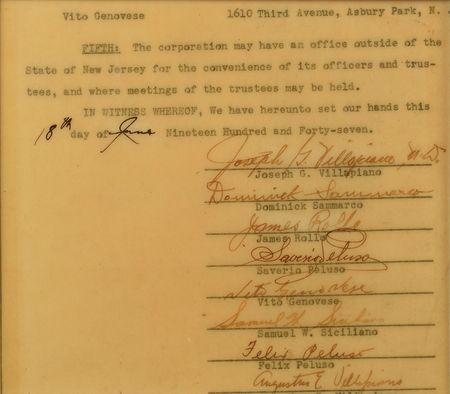 Vito Genovese 1610 Third Avenue, Asbury Park, N.
FIFTH: The corporation may have an office outside of the
State of New Jersey for the convenience of its officers and trus-
tees, and where meetings of the trustees may be held.
IN WITNESS WHEREOF, We have hereunto set our hands this
18th day of June Nineteen Hundred and Forty-seven.
Joseph G. Villapiano, M.D.
Joseph G. Villapiano
Dominick Sammarco
Dominick Sammarco
James Rollo
James Rollo
Saverio Peluso
Saverio Peluso
Vito Genovese
Vito Genovese
Samuel W. Siciliano
Samuel W. Siciliano
Felix Peluso
Felix Peluso
Augustus E. Villapiano